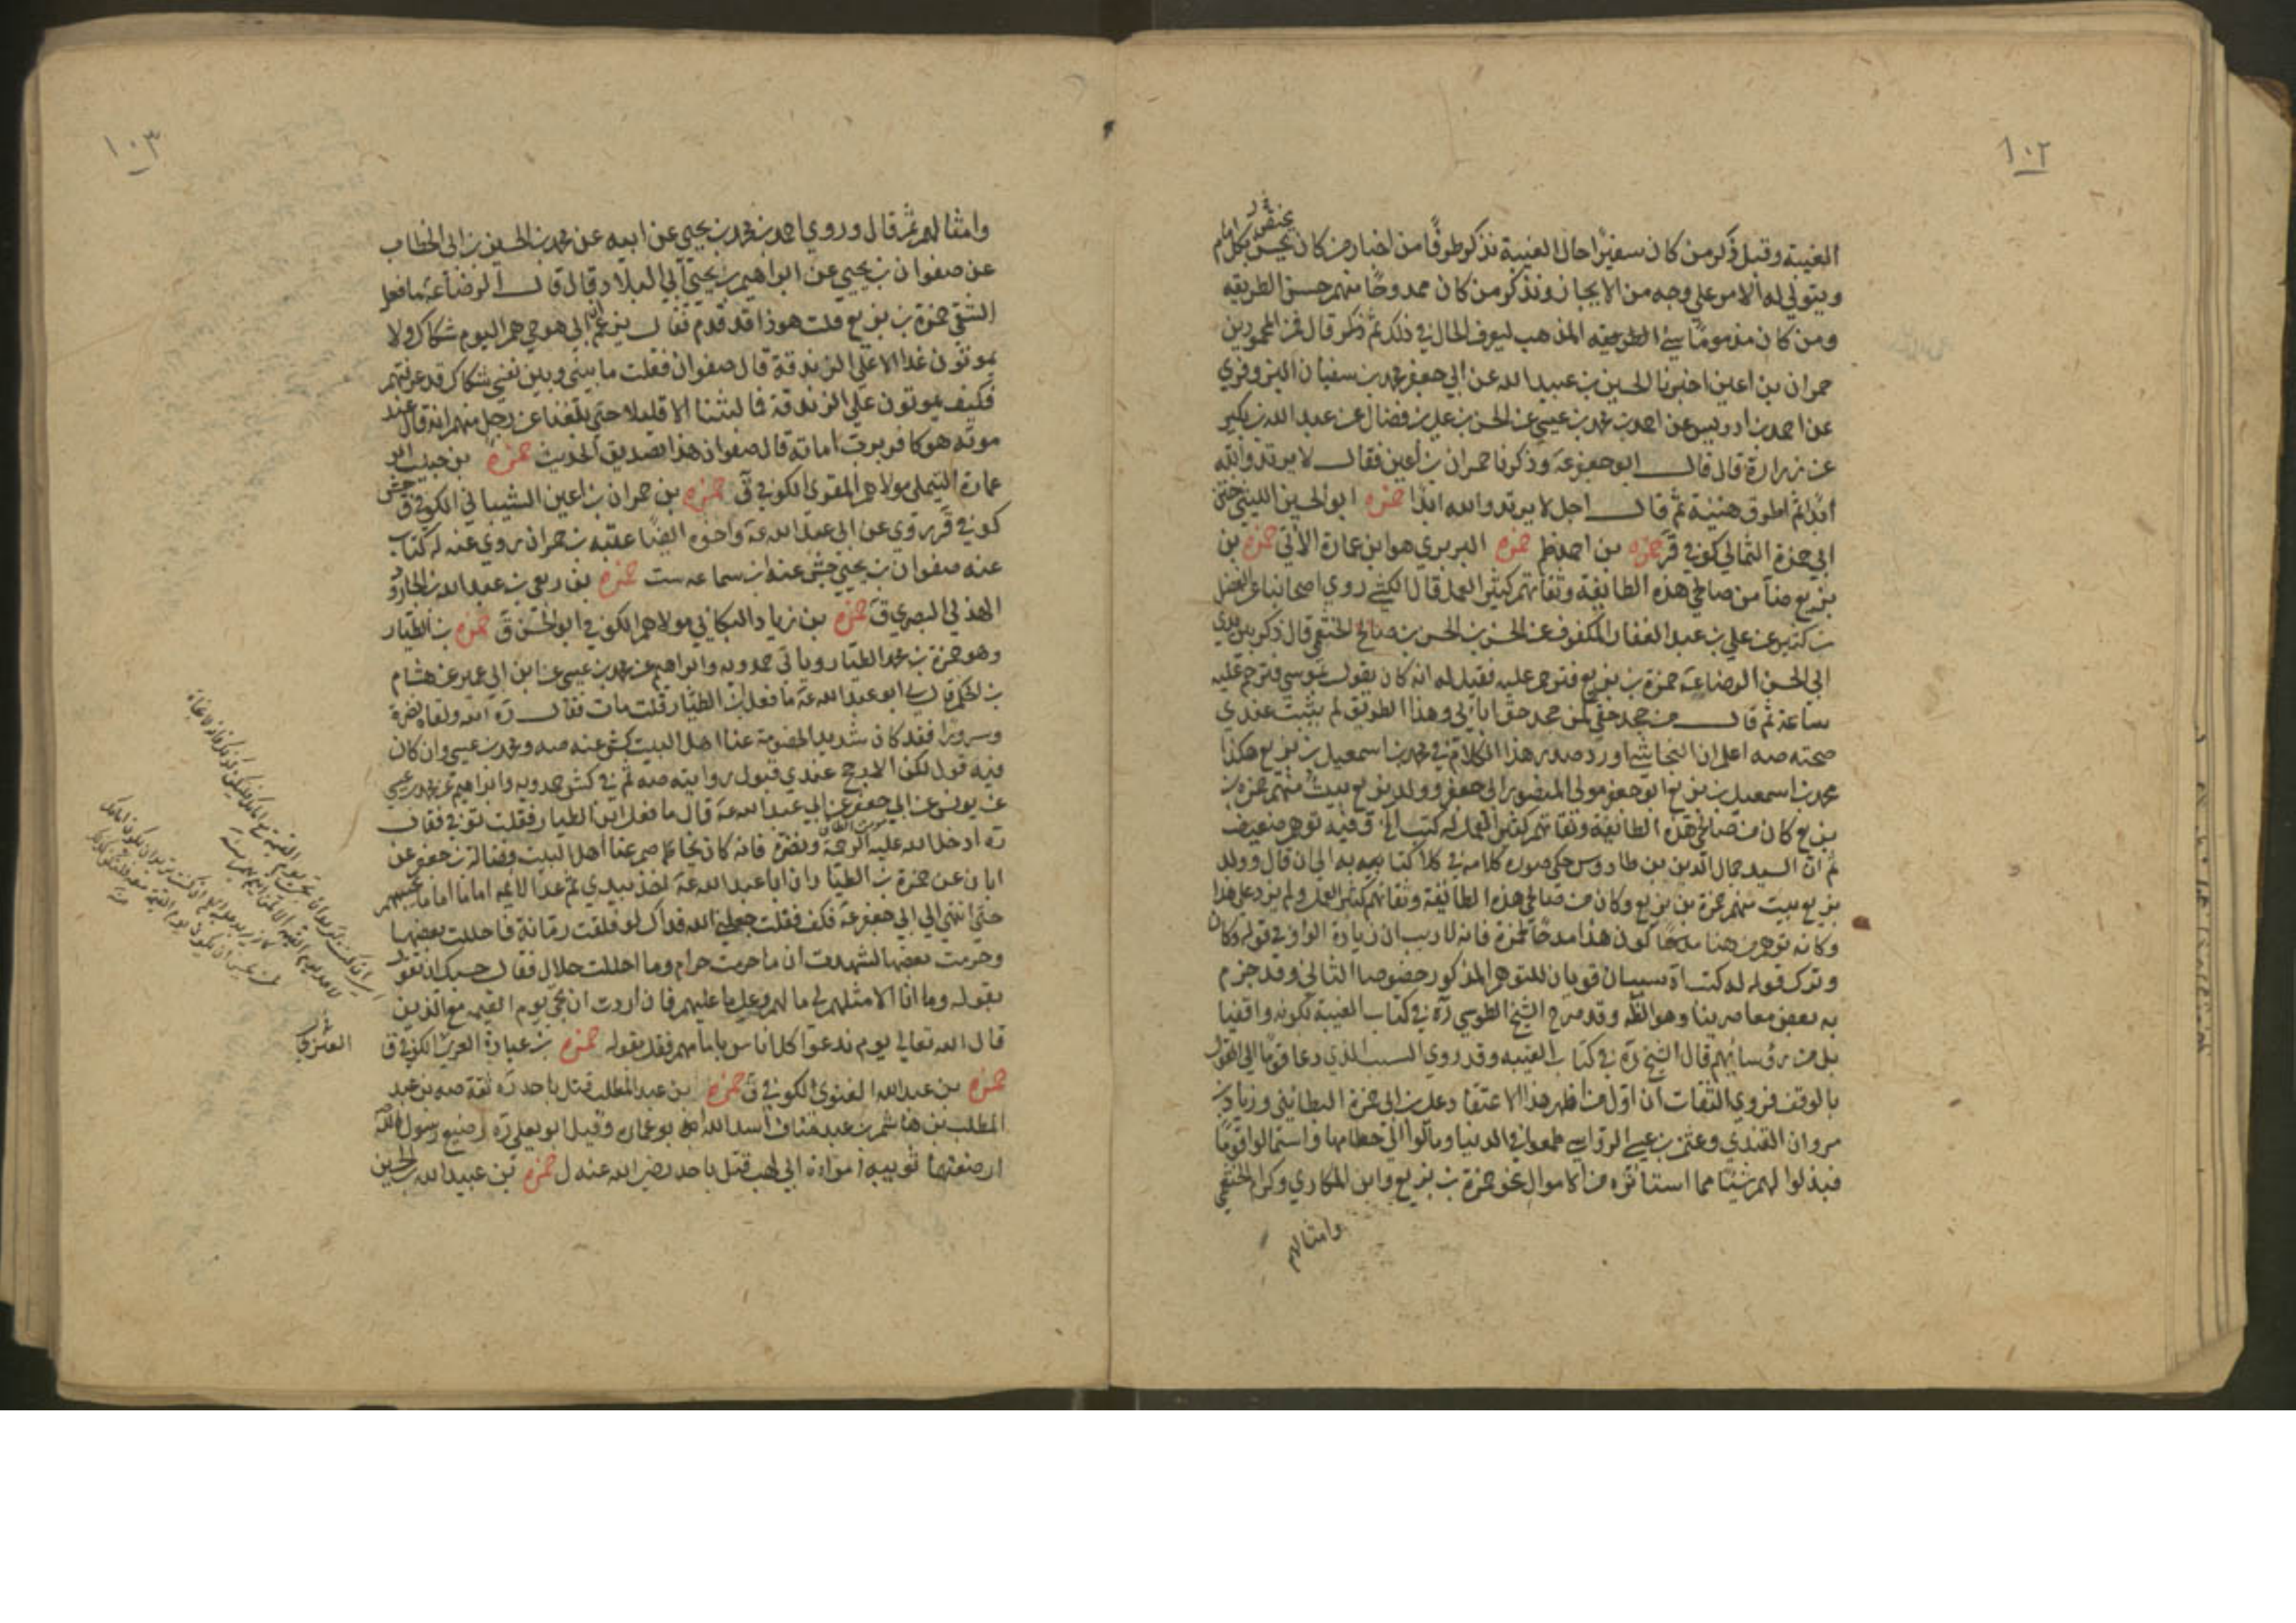 ١٠٢
الغيبة وقبل ذكر من كان سفيرا حال الغيبة نذكر طرفا من اخبار من كان يختص بكل امام
ويتولى له الامر على وجه من الايجاز ونذكر من كان ممدوحا منهم حسن الطريقه
ومن كان مذموما سيئ الطريقه المذهب ليعرف الحال في ذلك ثم ذكر قال فمن المحمودين
حمران بن اعين اخبرنا الحسين بن عبيد الله عن ابي جعفر محمد بن سفيان البزوفري
عن احمد بن ادريس عن احمد بن محمد بن عيسى عن الحسن بن علي بن فضال عن عبد الله بن بكير
عن زرارة قال قال ابو جعفر عه وذكرنا حمران بن اعين فقال لا يرتد والله
ابدا ثم اطرق هنيئة ثم قال اجل لا يرتد والله ابدا حمزه ابو الحسين الليثي ختن
ابي حمزة الثمالي كوفي ق حمزه بن احمد ظم حمزه البربري هو ابن عمارة الآتي حمزه بن
بزيع صه من صالحي هذه الطايفة وثقاتهم كثير العمل قال الكشي روى اصحابنا عن الفضل
بن كثير عن علي بن عبد الغفار المكفوف عن الحسن بن الحسن بن صالح الخثعمي قال ذكر بين يدي
ابي الحسن الرضا عه حمزة بن بزيع فترحم عليه فقيل له انه كان يقول بموسى فترحم عليه
ساعة ثم قال من جحد حقي كمن جحد حق ابائي وهذا الطريق لم يثبت عندي
صحته صه اعلم ان النجاشي اورد صدر هذا الكلام في محمد بن اسمعيل بن بزيع هكذا
محمد بن اسمعيل بن بزيع ابو جعفر مولى المنصور ابي جعفر وولد بزيع بيت منهم حمزه بن
بزيع كان من صالحي هذه الطايفة وثقاتهم كثير العمل له كتب الخ ففيه توهم ضعيف
ثم ان السيد جمال الدين بن طاووس حكى صوره كلامه في كلا كتابيه به الى ان قال وولد
بزيع بيت منهم حمزة بن بزيع وكان من صالحي هذه الطائفة وثقاتهم كثير العمل ولم يزد على هذا
وكانه توهم من هنا كون هذا مدحا لحمزة فانه لا ريب ان زيادة الواو في قوله وكان
وترك قوله له كتب سببان قويان للتوهم المذكور خصوصا الثاني وقد جزم
به بعض معاصرينا وهو الظ وقد صرح الشيخ الطوسي ره في كتاب الغيبة بكونه واقفيا
بل من رؤسائهم قال الشيخ ره في كتاب الغيبه وقد روي السبب الذي دعا قوما الى القول
بالوقف فروى الثقات ان اول من اظهر هذا الاعتقاد علي بن ابي حمزة البطائني وزياد بن
مروان القندي وعثمن بن عيسى الرواسي طمعوا في الدنيا ومالوا الى حطامها واستمالوا قوما
فبذلوا لهم شيئا مما استاثروه من الاموال نحو حمزة بن بزيع وابن المكاري وكرام الخثعمي
وامثالهم
١٠٣
وامثالهم ثم قال وروى احمد بن محمد بن يحيى عن ابيه عن محمد بن الحسين بن ابي الخطاب
عن صفوان بن يحيى عن ابراهيم بن يحيى ابي البلاد قال قال الرضا عه ما فعل
الشقي حمزة بن بزيع قلت هوذا قد قدم فقال يزعم ان ابي هو حي هم اليوم شكاك ولا
يموتون غدا الا على الزندقة قال صفوان فقلت ما بيني وبين نفسي شكاك قد عرفتهم
فكيف يموتون على الزندقة فما لبثنا الا قليلا حتى بلغنا عن رجل منهم انه قال عند
موته هو كافر برب اماته قال صفوان هذا تصديق الحديث حمزه بن حبيب ابو
عمارة التيملي مولاهم المقري الكوفي ق حمزه بن حمران بن اعين الشيباني الكوفي ق جش
كوفي قر روى عن ابي عبد الله عه واخوه ايضا عقبه بن حمران روى عنه له كتاب
عنه صفوان بن يحيى جش عنه ابن سماعه ست حمزه بن ربعي بن عبد الله بن الجارود
الهذلي البصري ق حمزه بن زياد البكائي مولاهم الكوفي ابو الحسن ق حمزه بن الطيار
وهو حمزة بن محمد الطيار وياتي حمدويه وابراهيم عن محمد بن عيسى عن ابن ابي عمير عن هشام
بن الحكم قال لي ابو عبد الله عه ما فعل ابن الطيار قلت مات فقال ره الله ولقاه نضرة
وسرورا فقد كان شديد الخصومة عنا اهل البيت كش عنه صه ومحمد بن عيسى وان كان
فيه قول لكن الارجح عندي قبول روايته صه ثم في كش حمدويه وابراهيم عن محمد بن عيسى
عن يونس عن ابي جعفر عن ابي عبد الله عه قال ما فعل ابن الطيار فقلت توفي فقال
ره ادخل الله عليه الرحمة ونضره فانه كان يخاصم عنا اهل البيت وفضالة بن جعفر عن
ابان عن حمزة بن الطيار ان ابا عبد الله عه اخذ بيدي ثم عد الايمه اماما اماما يحسبهم
حتى انتهى الى ابي جعفر عه فكف فقلت جعلني الله فداك لو فلقت رمانة فاحللت بعضها
وحرمت بعضها لشهدت ان ما حرمت حرام وما احللت حلال فقال حسبك ان تقول
بقوله وما انا الا مثلهم لي ما لهم وعلي ما عليهم فان اردت ان تجئ يوم القيمه مع الذين
قال الله تعالى يوم ندعوا كل اناس بامامهم فقل بقوله حمزه بن عبادة العنزي الكوفي ق
حمزه بن عبد الله الغنوي الكوفي ق حمزه بن عبد المطلب قتل باحد ره ثقة صه بن عبد
المطلب بن هاشم بن عبد مناف اسد الله ابو عماره وقيل ابو يعلى ره رضيع رسول الله
ارضعتهما ثويبه امراة ابي لهب قتل باحد رضي الله عنه ل حمزه بن عبيد الله بن الحسين